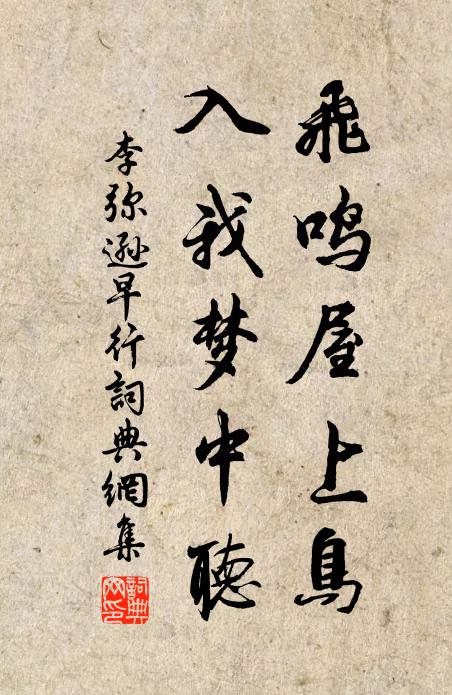 飛鳴屋上鳥
入我梦中聽
李弥遜早行詞典網集
詞典网印